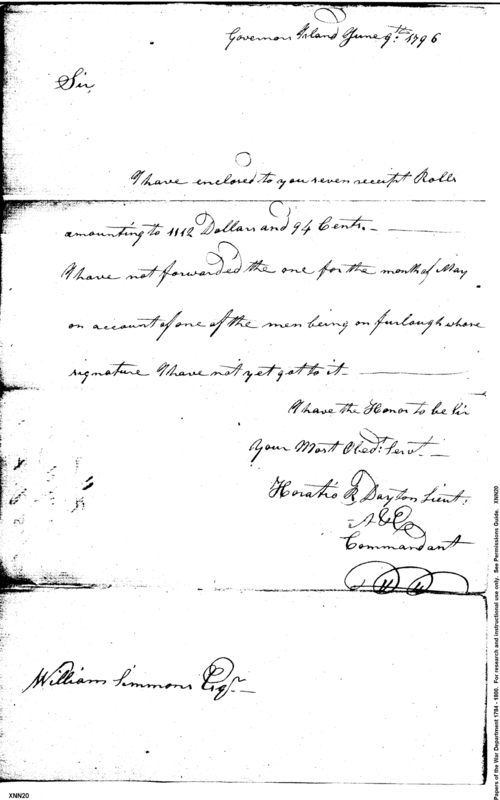 Governors Island June 9th. 1796
Sir,
I have enclosed to you seven receipt Rolls
amounting to 1112 Dollars and 94 Cents. —
I have not forwarded the one for the month of May
on account of one of the men being on furlough whose
signature I have not yet got to it —
I have the Honor to be Sir
Your Most Obedt. Servt. —
Horatio R Dayton Lieut.
A&E
Commandant
William Simmons Esqr. —
XNN20
Papers of the War Department 1784 - 1800. For research and instructional use only. See Permissions Guide. XNN20